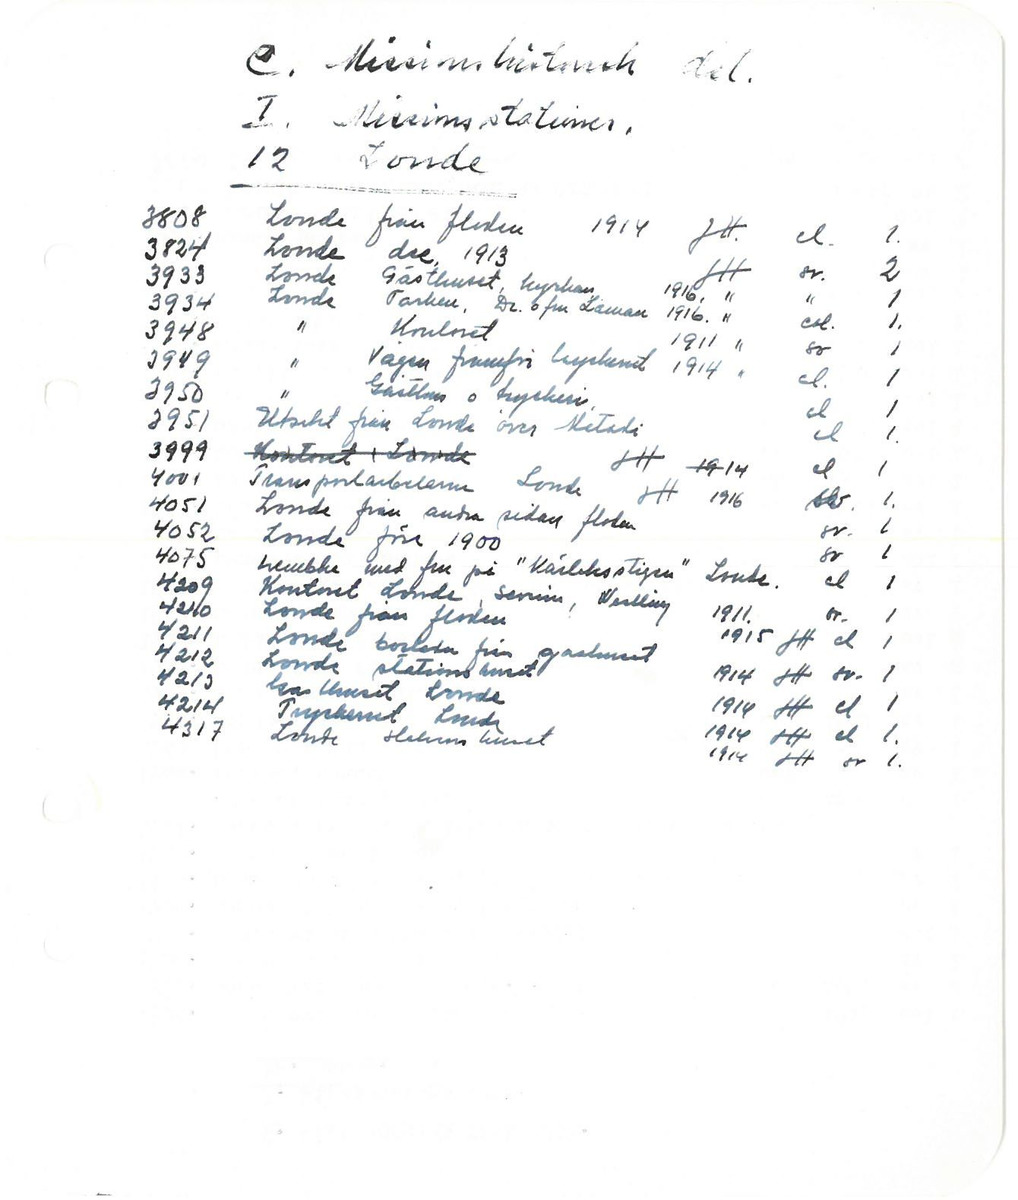 C. Missionshistorisk del.
I. Missionsstationer.
12 Londe
3808 Londe från floden 1914 JH. cl. 1.
3824 Londe dec, 1913 JH sv. 2
3933 Londe Gästhuset, kyrkan 1916, " " 1
3934 Londe Parken, Dr. o fru Laman 1916. " col. 1.
3948 " Kontoret 1911 " sv 1
3949 " Vägen framför tryckeriet 1914 " cl. 1
3950 " Gästhus o tryckeri, cl 1
3951 Utsikt från Londe över Matadi cl 1.
3999 Kontoret i Londe JH 1914 cl 1
4001 Transportarbetarna Londe JH 1916 sv. 1.
4051 Londe från andra sidan floden sv. 1
4052 Londe före 1900 sv 1
4075 med fru på "Kärleksstigen" Londe. cl 1
4209 Kontoret Londe, Westling 1911. sv. 1
4210 Londe från floden 1915 JH cl 1
4211 Londe från gasthuset 1914 JH sv. 1
4212 Londe stationshuset 1914 JH cl 1
4213 Gasthuset Londe 1914 JH cl 1.
4214 Tryckeriet Londe 1914 JH sv 1.
4317 Londe stationshuset